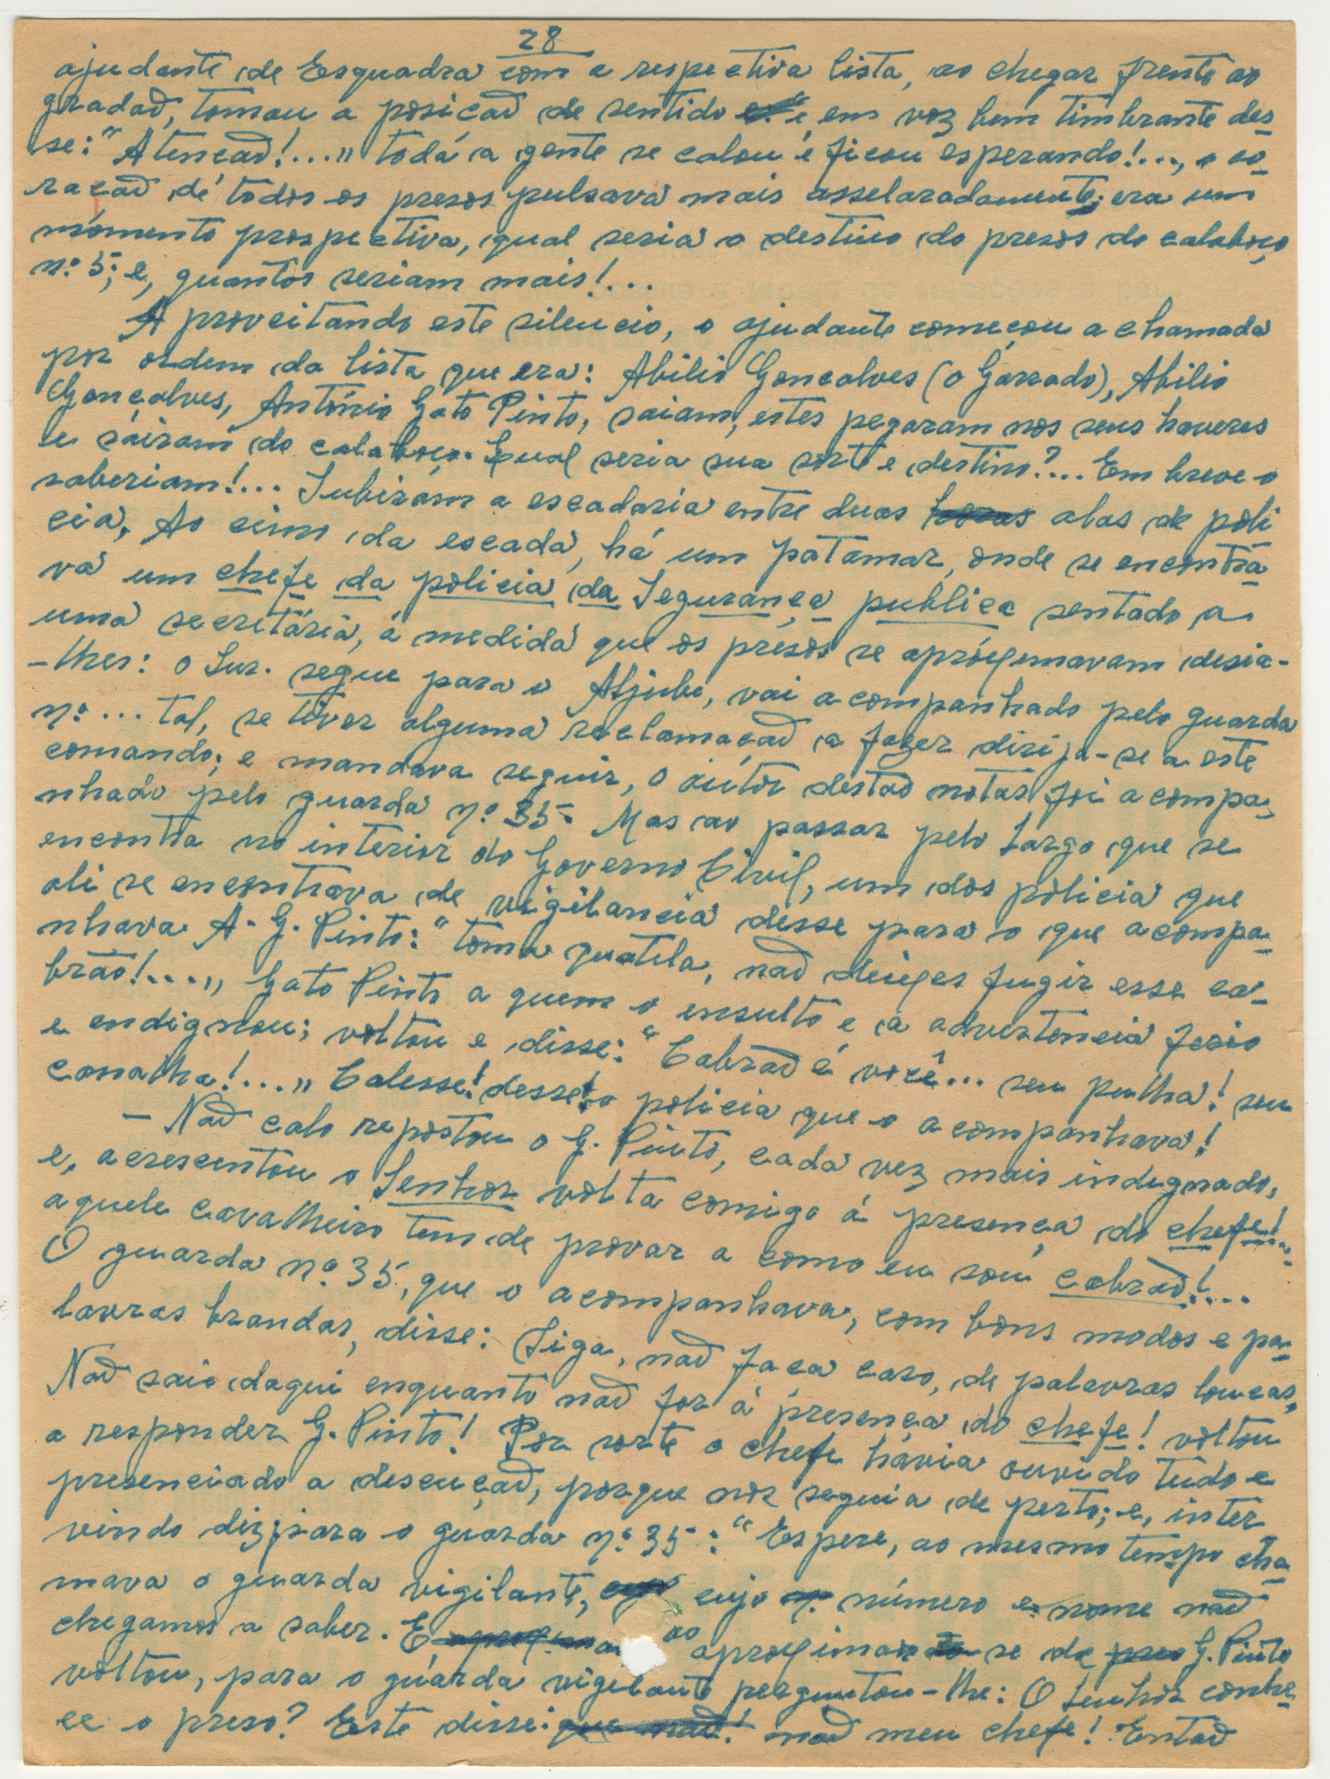 28
ajudante de Esquadra com a respectiva lista, ao chegar frente ao
gradad, tomau a posicad de sentido e em voz bem timbrante des-
se: "Atencad!...„ toda a gente se calou e ficou esperando!..., o co-
racad de todos os presos pulsava mais asselaradamente; era um
momento prospectiva, qual seria o destino do presos do calaboço
nº 5; e, quantos seriam mais!...
Aproveitando este silencio, o ajudante começou a chamada
por ordem da lista que era: Abilio Goncalves (o Garrado), Abilio
Gonçalves, António Gato Pinto, saiam, estes pegaram nos seus haveres
e sairam do calaboço. Qual seria sua sorte e destino?... Em breve o
saberiam!... Subiram a escadaria entre duas alas de poli
cia. Ao cimo da escada, há um patamar, onde se encontra-
va um chefe da policia da Segurança publica sentado a
uma secretária, á medida que os presos se aproximavam desia-
-lhes: o Snr. segue para o Aljube, vai acompanhado pelo guarda
nº ... tal, se tiver alguma reclamacad a fazer dirija-se a este
comando; e mandava seguir, o autor destad notas foi acompa-
nhado pelo guarda nº 35- Mas ao passar pelo Largo que se
encontra no interior do Governo Civil, um dos policia que
ali se encontrava de vigilancia desse para o que acompa-
nhava A. G. Pinto: "toma quatela, nad deixes fugir esse ca-
brão!...„ Gato Pinto a quem o ensulto e a advertencia ferio
e endignou; voltou e disse: "Cabrad é você... seu pulha! seu
canalha!...„ Calesse! desse o policia que o acompanhava!
- Nad calo repostou o G. Pinto, cada vez mais indegnado,
e, acrescentou o Senhor volta comigo á presença do chefe!...
aquele cavalheiro tem de provar a como eu sou cabrad!...
O guarda nº 35, que o acompanhava, com bons modos e pa-
lavras brandas, disse: Siga, nad faca caso, de palavras loucas,
Nad saio daqui enquanto nad for á presença do chefe! voltou
a responder G. Pinto! Por sorte o chefe havia ouvido tudo e
presenciado a descuçad, porque nos seguia de perto; e, inter
vindo diz para o guarda nº 35: "Espere, ao mesmo tempo cha-
mava o guarda vigilante, cujo número e nome nad
chegamos a saber. E ao aproximar se de G. Pinto
voltou, para o guarda vigilante perguntou-lhe: O Senhor conhe-
ce o preso? Este disse: nad meu chefe! Entad